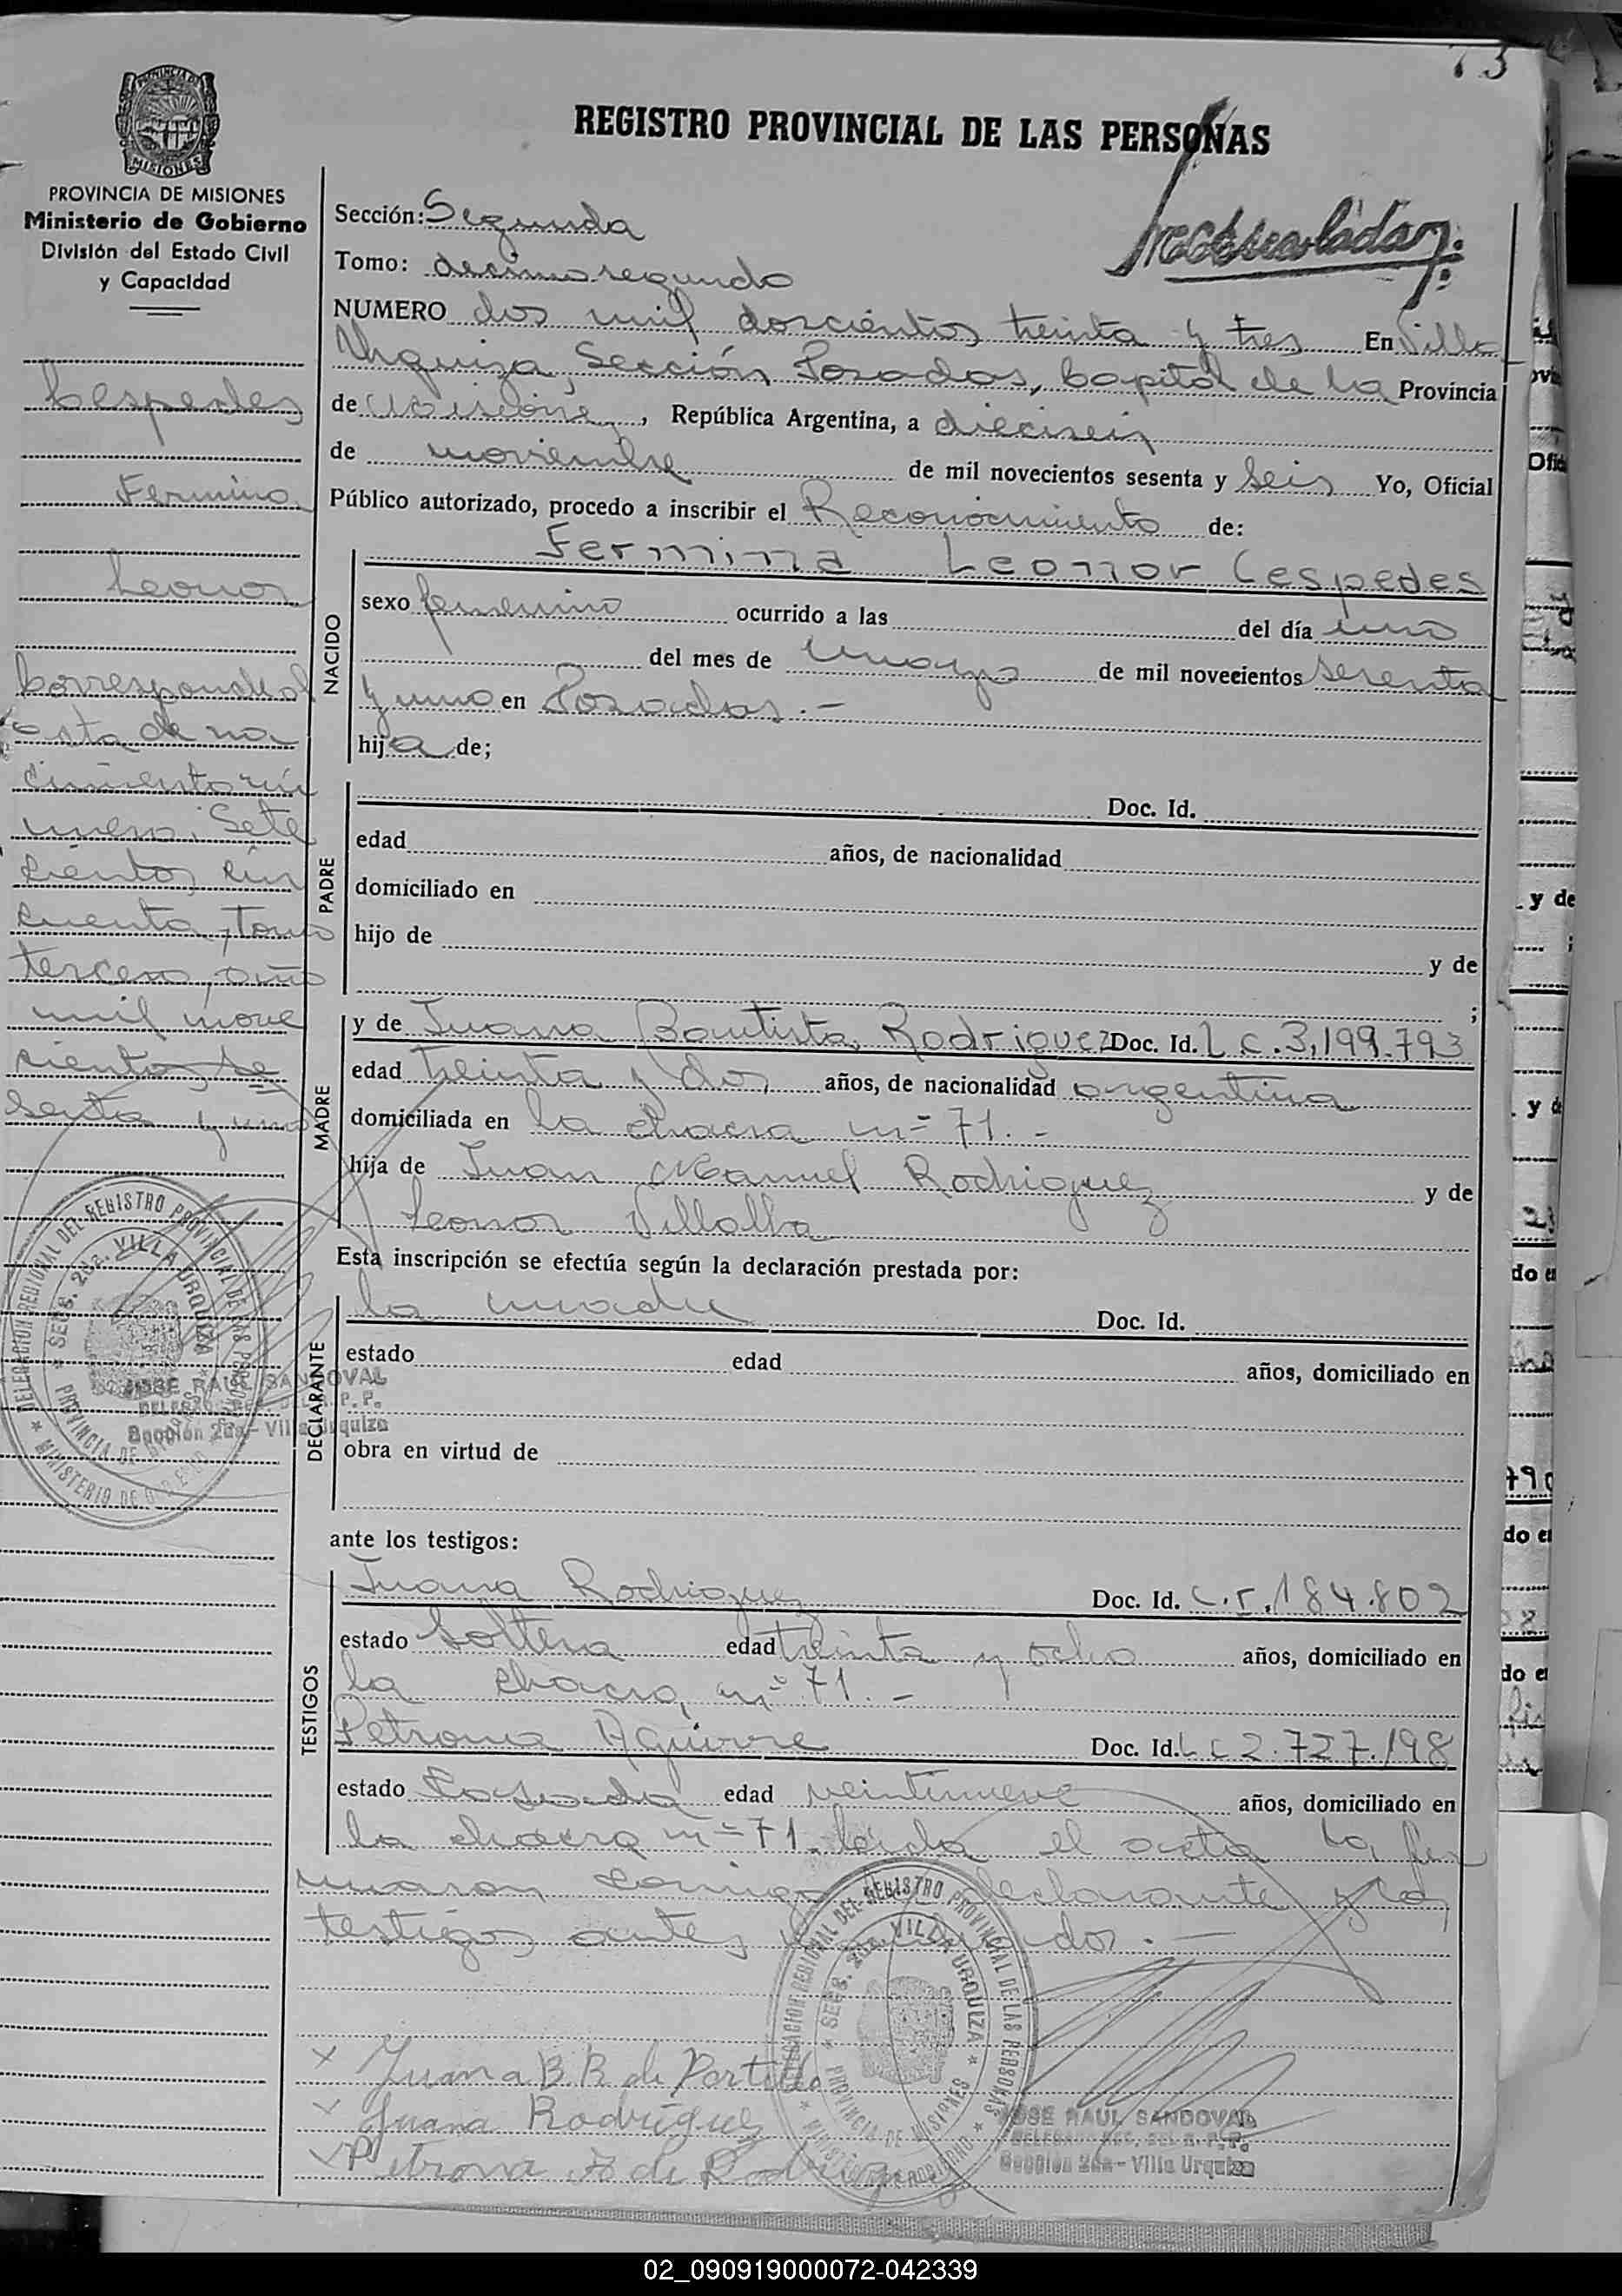 73
REGISTRO PROVINCIAL DE LAS PERSONAS
PROVINCIA DE MISIONES
Ministerio de Gobierno
División del Estado Civil
y Capacidad
Cespedes
Fermina
Leonor
Corresponde al
acta de na
cimiento nú
mero Sete
cientos cin
cuenta, Tomo
tercero, año
mil nove
cientos se
senta y uno
Sección: Segunda
Tomo: decimo segundo
NUMERO dos mil doscientos treinta y tres En Villa
Urquiza, Sección Posadas, Capital de la Provincia
de Misiones, República Argentina, a dieciseis
de noviembre de mil novecientos sesenta y seis Yo, Oficial
Público autorizado, procedo a inscribir el Reconocimiento de:
NACIDO
Fermina Leonor Cespedes
sexo femenino ocurrido a las del día uno
del mes de mayo de mil novecientos sesenta
y uno en Posadas.-
hija de;
PADRE
Doc. Id.
edad años, de nacionalidad
domiciliado en
hijo de y de
;
MADRE
y de Juana Bautista Rodriguez Doc. Id. L C. 3,199.793
edad treinta y dos años, de nacionalidad argentina
domiciliada en la chacra nº 71.-
hija de Juan Manuel Rodriguez y de
Leonor Villalba
Esta inscripción se efectúa según la declaración prestada por:
DECLARANTE
la madre Doc. Id.
estado edad años, domiciliado en
obra en virtud de
ante los testigos:
TESTIGOS
Juana Rodriguez Doc. Id. C.I. 184.802
estado Soltera edad treinta y ocho años, domiciliado en
la chacra nº 71.-
Petrona Aguirre Doc. Id. L C 2.727.198
estado Casada edad veintinueve años, domiciliado en
la chacra nº 71. leida el acta la fir
maron conmigo declarante y los
testigos antes
Juana B. R. de Portillo
Juana Rodriguez
Petrona A de Rodriguez
DELEGACION REGIONAL DEL REGISTRO PROVINCIAL DE LAS PERSONAS
SECC. 2da. VILLA URQUIZA
PROVINCIA DE MISIONES
MINISTERIO DE GOBIERNO
JOSE RAUL SANDOVAL
DELEGADO REG. DEL R. P. P.
Sección 2da - Villa Urquiza
02_090919000072-042339